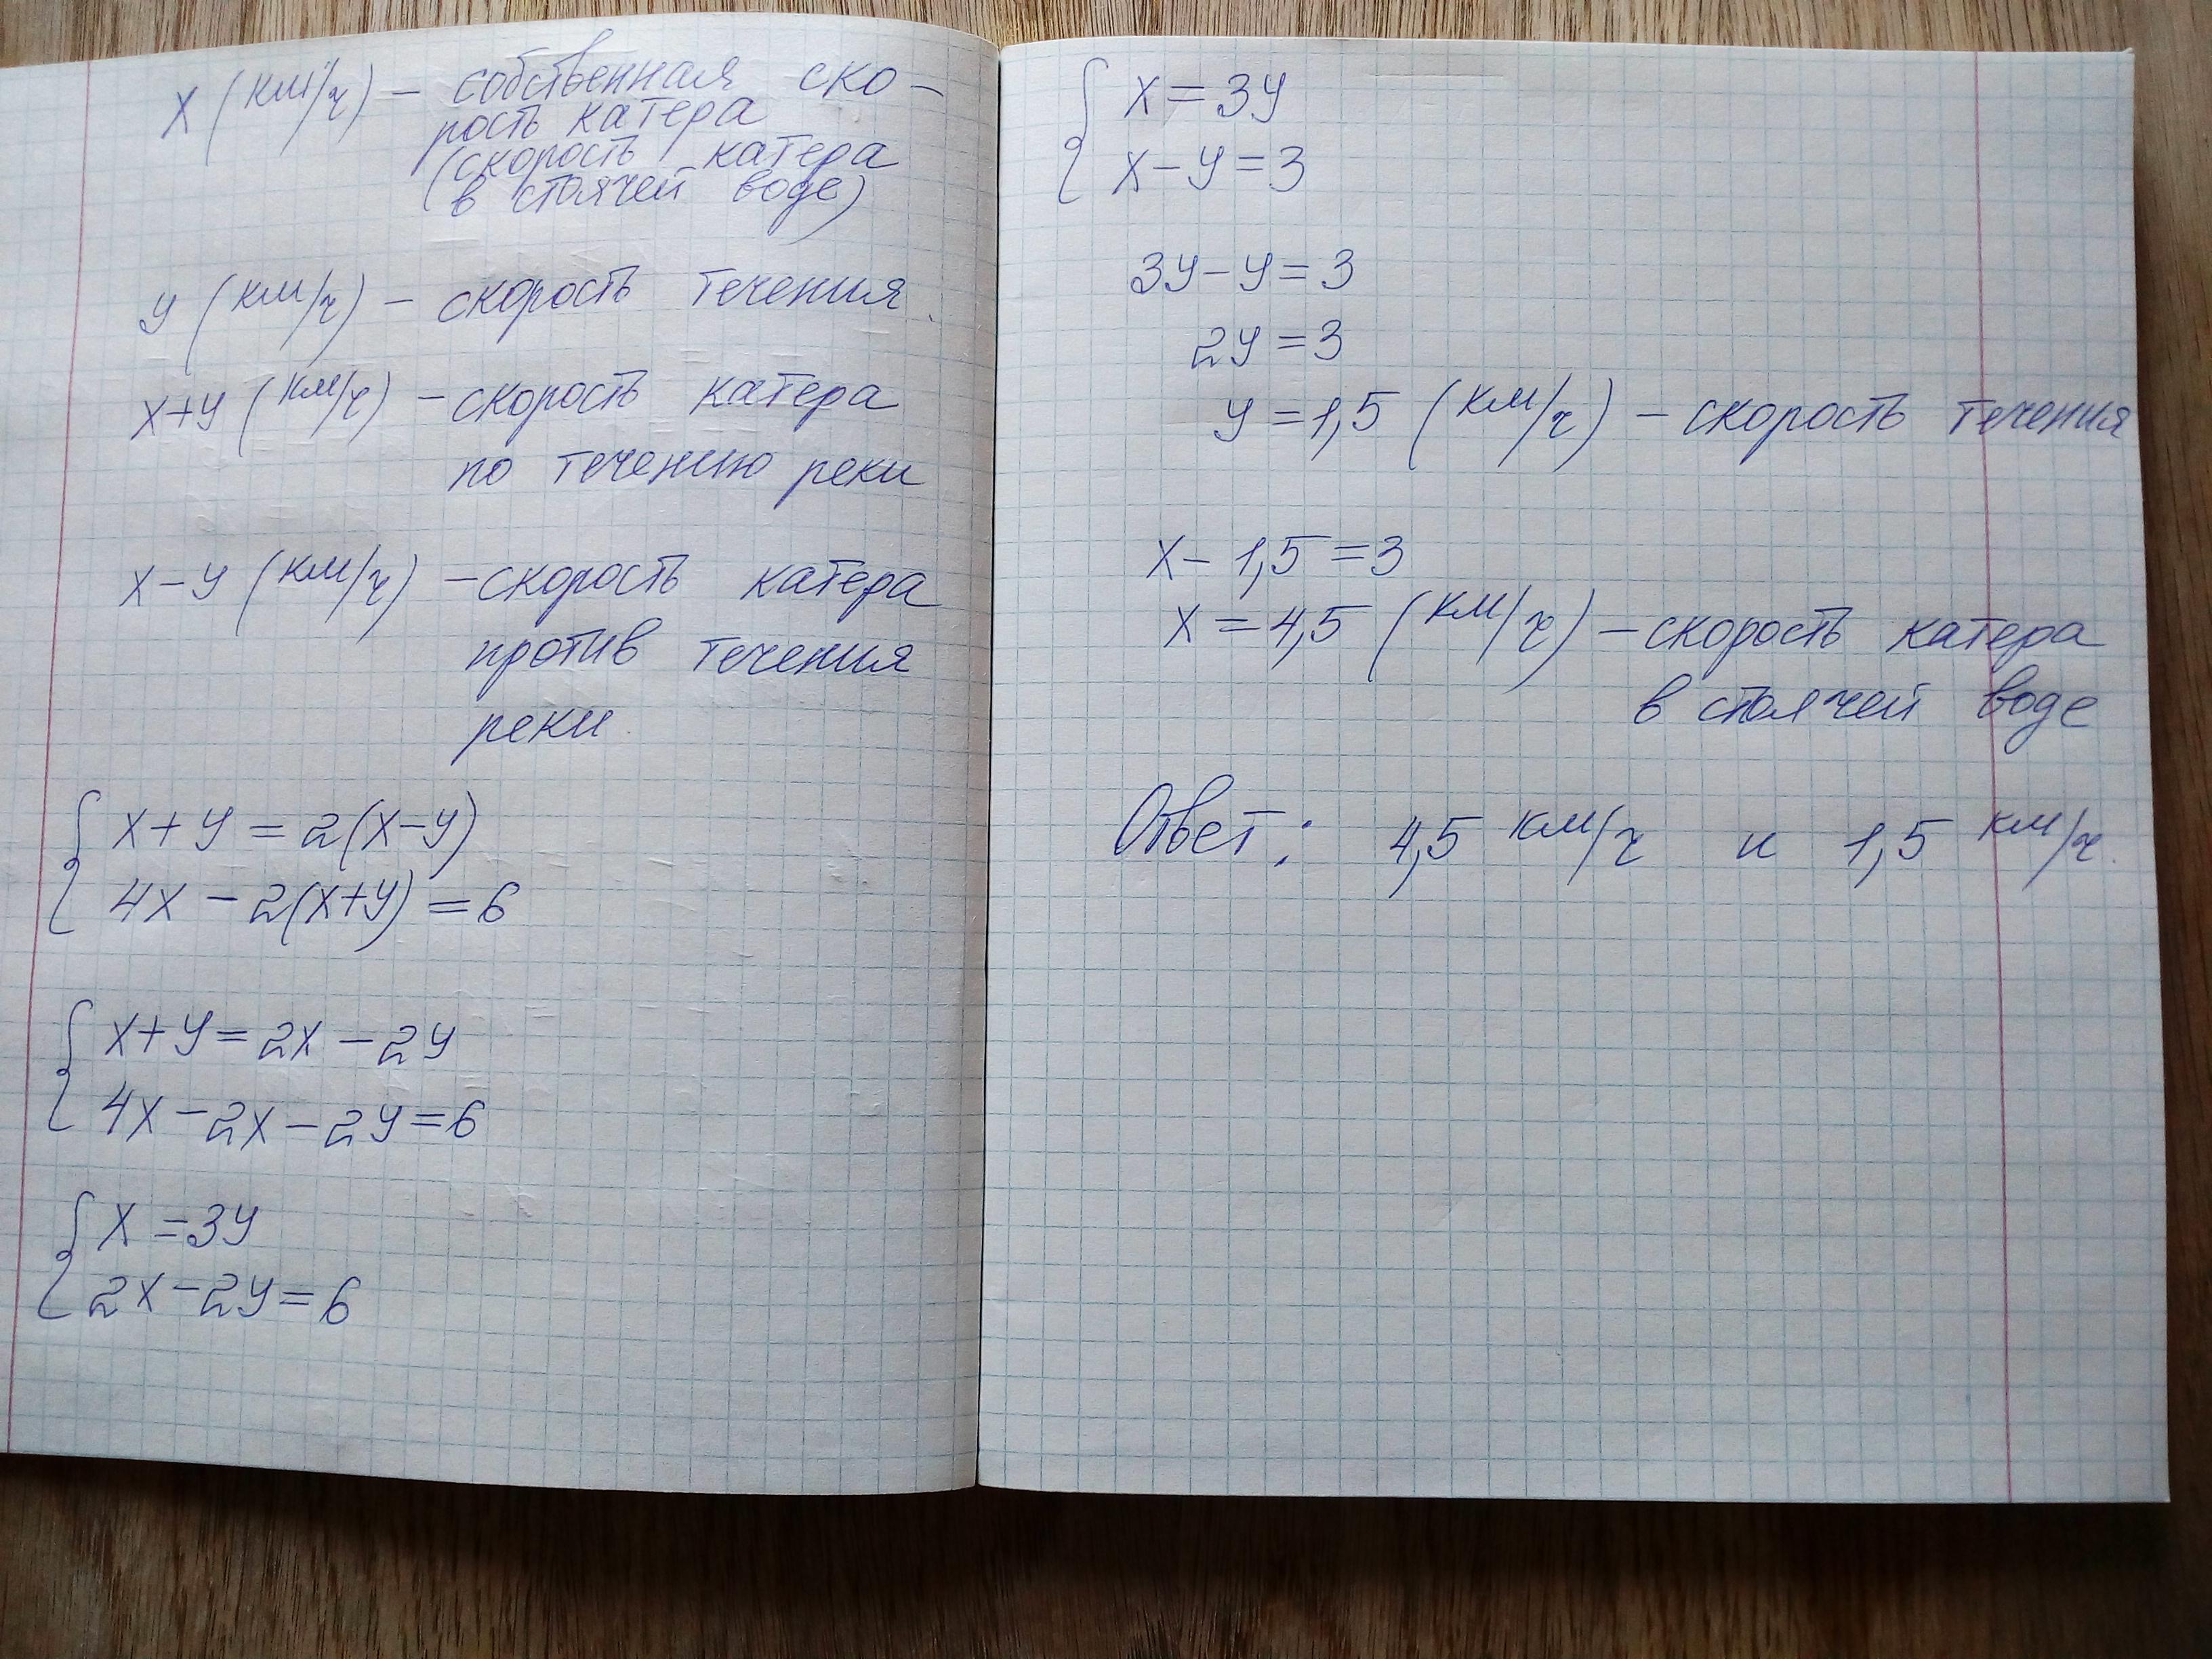 x (км/ч) – собственная ско-
рость катера
(скорость катера
в стоячей воде)
y (км/ч) – скорость течения.
x+y (км/ч) – скорость катера
по течению реки
x–y (км/ч) – скорость катера
против течения
реки.
{ x+y = 2(x–y)
4x – 2(x+y) = 6
{ x+y = 2x – 2y
4x – 2x – 2y = 6
{ x = 3y
2x – 2y = 6
{ x = 3y
x – y = 3
3y – y = 3
2y = 3
y = 1,5 (км/ч) – скорость течения
x – 1,5 = 3
x = 4,5 (км/ч) – скорость катера
в стоячей воде
Ответ: 4,5 км/ч и 1,5 км/ч.